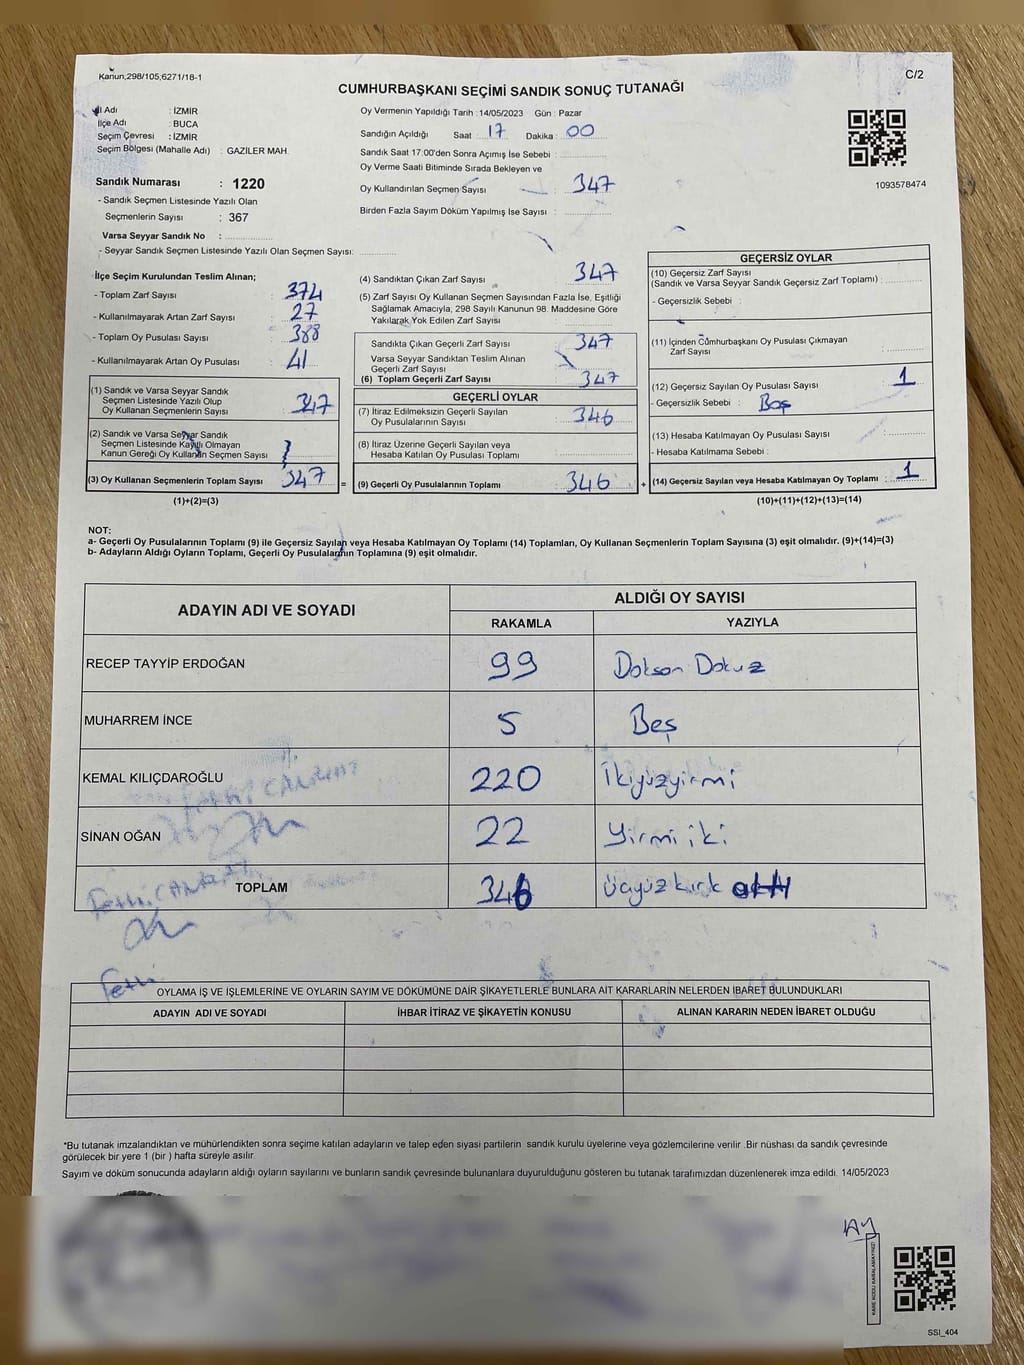 Kanun,298/105,6271/18-1
C/2
CUMHURBAŞKANI SEÇİMİ SANDIK SONUÇ TUTANAĞI
İl Adı : İZMİR
İlçe Adı : BUCA
Seçim Çevresi : İZMİR
Seçim Bölgesi (Mahalle Adı) : GAZİLER MAH.
Sandık Numarası : 1220
- Sandık Seçmen Listesinde Yazılı Olan
Seçmenlerin Sayısı : 367
Varsa Seyyar Sandık No :
- Seyyar Sandık Seçmen Listesinde Yazılı Olan Seçmen Sayısı:
Oy Vermenin Yapıldığı Tarih : 14/05/2023 Gün : Pazar
Sandığın Açıldığı Saat 17 Dakika : 00
Sandık Saat 17:00'den Sonra Açımış İse Sebebi :
Oy Verme Saati Bitiminde Sırada Bekleyen ve
Oy Kullandırılan Seçmen Sayısı : 347
Birden Fazla Sayım Döküm Yapılmış İse Sayısı :
1093578474
İlçe Seçim Kurulundan Teslim Alınan;
- Toplam Zarf Sayısı : 374
- Kullanılmayarak Artan Zarf Sayısı : 27
- Toplam Oy Pusulası Sayısı : 388
- Kullanılmayarak Artan Oy Pusulası : 41
(1) Sandık ve Varsa Seyyar Sandık
Seçmen Listesinde Yazılı Olup
Oy Kullanan Seçmenlerin Sayısı : 347
(2) Sandık ve Varsa Seyyar Sandık
Seçmen Listesinde Kayıtlı Olmayan
Kanun Gereği Oy Kullanan Seçmen Sayısı :
(3) Oy Kullanan Seçmenlerin Toplam Sayısı : 347 =
(1)+(2)=(3)
(4) Sandıktan Çıkan Zarf Sayısı : 347
(5) Zarf Sayısı Oy Kullanan Seçmen Sayısından Fazla İse, Eşitliği
Sağlamak Amacıyla, 298 Sayılı Kanunun 98. Maddesine Göre
Yakılarak Yok Edilen Zarf Sayısı :
Sandıkta Çıkan Geçerli Zarf Sayısı : 347
Varsa Seyyar Sandıktan Teslim Alınan
Geçerli Zarf Sayısı :
(6) Toplam Geçerli Zarf Sayısı : 347
GEÇERLİ OYLAR
(7) İtiraz Edilmeksizin Geçerli Sayılan
Oy Pusulalarının Sayısı : 346
(8) İtiraz Üzerine Geçerli Sayılan veya
Hesaba Katılan Oy Pusulası Toplamı :
(9) Geçerli Oy Pusulalarının Toplamı : 346 +
GEÇERSİZ OYLAR
(10) Geçersiz Zarf Sayısı
(Sandık ve Varsa Seyyar Sandık Geçersiz Zarf Toplamı) :
- Geçersizlik Sebebi :
(11) İçinden Cumhurbaşkanı Oy Pusulası Çıkmayan
Zarf Sayısı :
(12) Geçersiz Sayılan Oy Pusulası Sayısı : 1
- Geçersizlik Sebebi : Boş
(13) Hesaba Katılmayan Oy Pusulası Sayısı :
- Hesaba Katılmama Sebebi :
(14) Geçersiz Sayılan veya Hesaba Katılmayan Oy Toplamı : 1
(10)+(11)+(12)+(13)=(14)
NOT:
a- Geçerli Oy Pusulalarının Toplamı (9) ile Geçersiz Sayılan veya Hesaba Katılmayan Oy Toplamı (14) Toplamları, Oy Kullanan Seçmenlerin Toplam Sayısına (3) eşit olmalıdır. (9)+(14)=(3)
b- Adayların Aldığı Oyların Toplamı, Geçerli Oy Pusulalarının Toplamına (9) eşit olmalıdır.
ADAYIN ADI VE SOYADI ALDIĞI OY SAYISI
RAKAMLA YAZIYLA
RECEP TAYYİP ERDOĞAN 99 Doksan Dokuz
MUHARREM İNCE 5 Beş
KEMAL KILIÇDAROĞLU 220 İkiyüzyirmi
SİNAN OĞAN 22 Yirmi iki
TOPLAM 346 Üçyüz kırk altı
Fethi
OYLAMA İŞ VE İŞLEMLERİNE VE OYLARIN SAYIM VE DÖKÜMÜNE DAİR ŞİKAYETLERLE BUNLARA AİT KARARLARIN NELERDEN İBARET BULUNDUKLARI
ADAYIN ADI VE SOYADI İHBAR İTİRAZ VE ŞİKAYETİN KONUSU ALINAN KARARIN NEDEN İBARET OLDUĞU
*Bu tutanak imzalandıktan ve mühürlendikten sonra seçime katılan adayların ve talep eden siyasi partilerin sandık kurulu üyelerine veya gözlemcilerine verilir .Bir nüshası da sandık çevresinde
görülecek bir yere 1 (bir ) hafta süreyle asılır.
Sayım ve döküm sonucunda adayların aldığı oyların sayılarını ve bunların sandık çevresinde bulunanlara duyurulduğunu gösteren bu tutanak tarafımızdan düzenlenerek imza edildi. 14/05/2023
KARE KODU KARALAMAYINIZ!
SSI_404